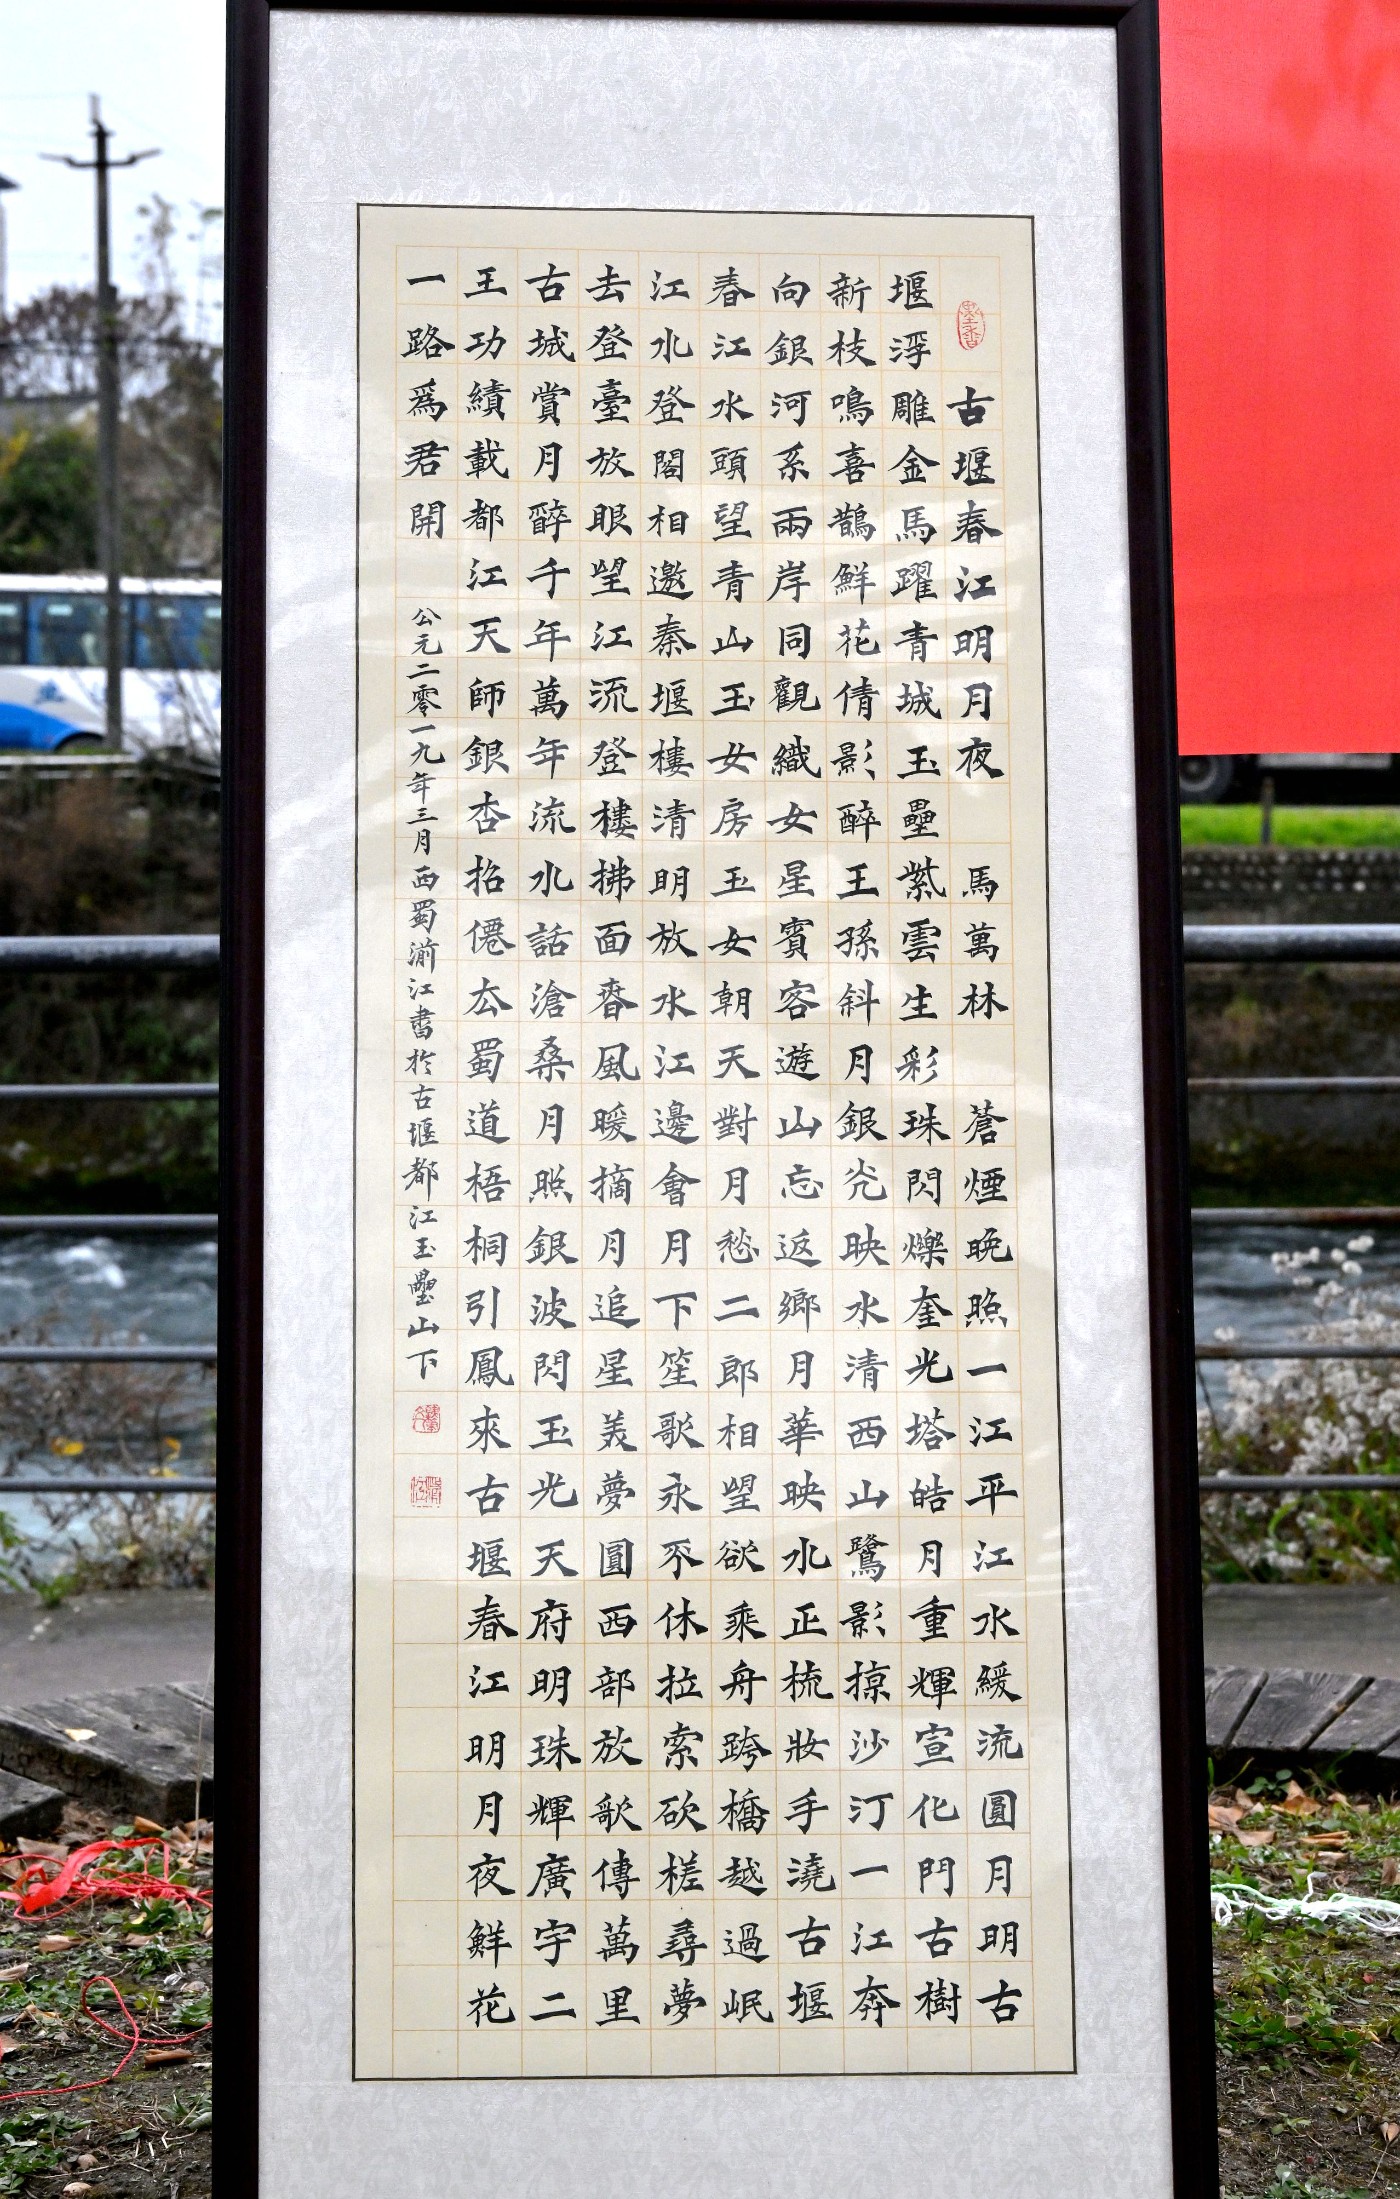 古堰春江明月夜 馬萬林 蒼煙晚照一江平江水緩流圓月明古
堰浮雕金馬躍青城玉壘紫雲生彩珠閃爍奎光塔皓月重輝宣化門古樹
新枝鳴喜鵲鮮花倩影醉王孫斜月銀光映水清西山鷺影掠沙汀一江奔
向銀河系兩岸同觀織女星賓客遊山忘返鄉月華映水正梳妝手澆古堰
春江水頭望青山玉女房玉女朝天對月愁二郎相望欲乘舟跨橋越過岷
江水登閣相邀秦堰樓清明放水江邊會月下笙歌永不休拉索砍槎尋夢
去登臺放眼望江流登樓拂面春風暖摘月追星美夢圓西部放歌傳萬里
古城賞月醉千年萬年流水話滄桑月照銀波閃玉光天府明珠輝廣宇二
王功績載都江天師銀杏招僊去蜀道梧桐引鳳來古堰春江明月夜鮮花
一路爲君開
公元二零一九年三月西蜀湔江書於古堰都江玉壘山下